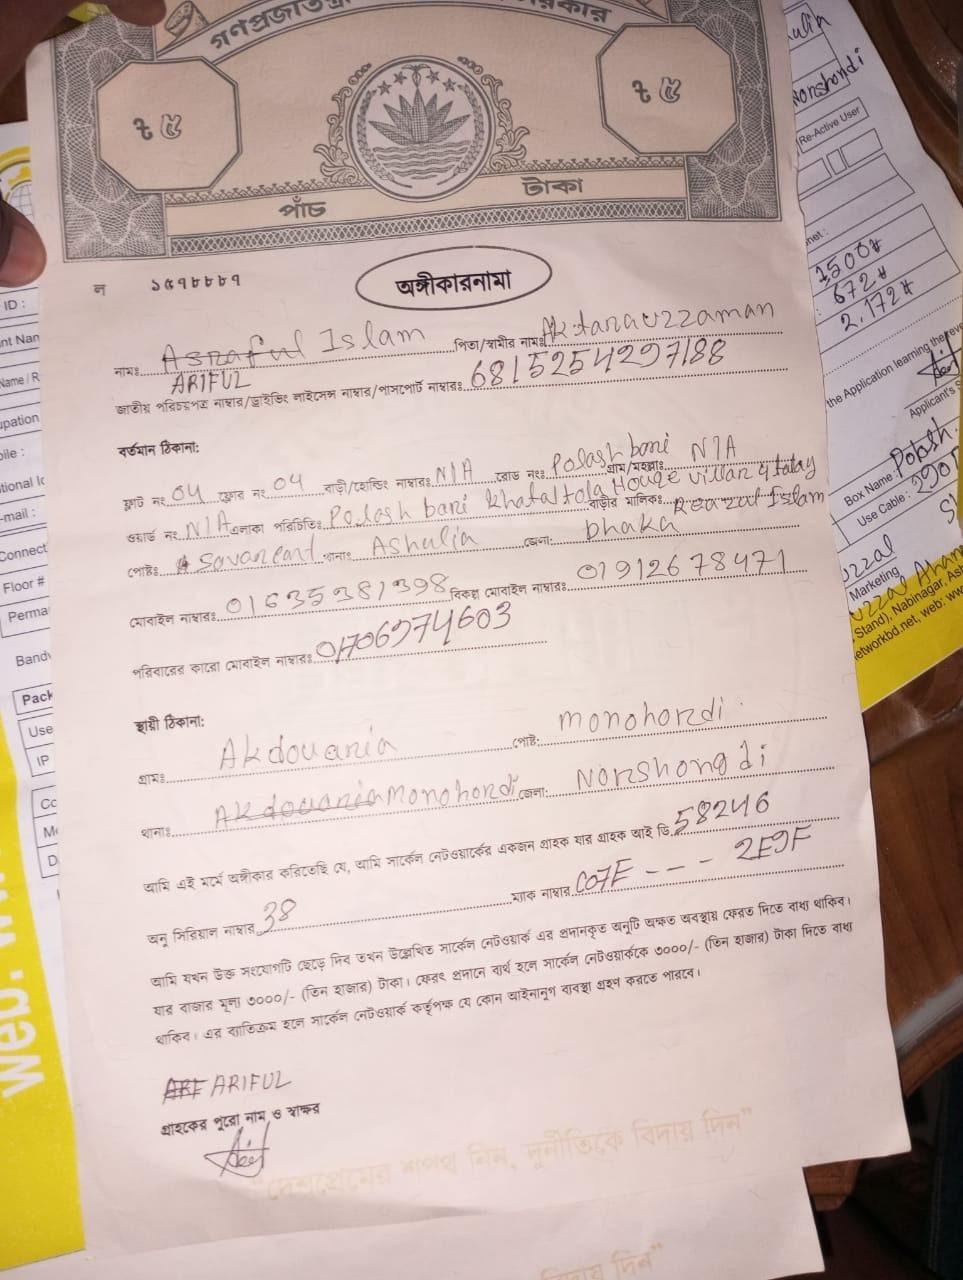 গণপ্রজাতন্ত্রী
সরকার
৳ ৫
৳ ৫
পাঁচ
টাকা
ন ১৫৭৮৮৮৭
অঙ্গীকারনামা
নামঃ Asraful Islam পিতা/স্বামীর নামঃ Aktarauzzaman
ARIFUL
জাতীয় পরিচয়পত্র নাম্বার/ড্রাইভিং লাইসেন্স নাম্বার/পাসপোর্ট নাম্বারঃ 6815254297188
বর্তমান ঠিকানা:
ফ্লাট নং 04 ফ্লোর নং 04 বাড়ী/হোল্ডিং নাম্বারঃ N/A রোড নংঃ Polashbari গ্রাম/মহল্লাঃ N/A
ওয়ার্ড নং N/A এলাকা পরিচিতিঃ Polash bari khataltola House villar 4 talay বাড়ীর মালিকঃ Reazul Islam
পোষ্টঃ Savar cant থানাঃ Ashulia জেলা: Dhaka
মোবাইল নাম্বারঃ 01635381398 বিকল্প মোবাইল নাম্বারঃ 01912678471
পরিবারের কারো মোবাইল নাম্বারঃ 01706974603
স্থায়ী ঠিকানা:
গ্রামঃ Akdouaria পোষ্ট: monohordi
থানাঃ Akdouaria monohordi জেলা: Norshongdi
আমি এই মর্মে অঙ্গীকার করিতেছি যে, আমি সার্কেল নেটওয়ার্কের একজন গ্রাহক যার গ্রাহক আই ডি 58246
অনু সিরিয়াল নাম্বার 38 ম্যাক নাম্বার C07E --- 2E9F
আমি যখন উক্ত সংযোগটি ছেড়ে দিব তখন উল্লেখিত সার্কেল নেটওয়ার্ক এর প্রদানকৃত অনুটি অক্ষত অবস্থায় ফেরত দিতে বাধ্য থাকিব।
যার বাজার মূল্য ৩০০০/- (তিন হাজার) টাকা। ফেরৎ প্রদানে ব্যর্থ হলে সার্কেল নেটওয়ার্ককে ৩০০০/- (তিন হাজার) টাকা দিতে বাধ্য
থাকিব। এর ব্যতিক্রম হলে সার্কেল নেটওয়ার্ক কর্তৃপক্ষ যে কোন আইনানুগ ব্যবস্থা গ্রহণ করতে পারবে।
ARF ARIFUL
গ্রাহকের পুরো নাম ও স্বাক্ষর
"দেশপ্রেমের শপথ নিন, দুর্নীতিকে বিদায় দিন"
বিদায় দিন"
ID :
Name / R
-mail :
Connect
Floor #
Perma
Pack
Use
IP
Cc
D
web:
Norshondi
Re-Active User
1,500
672
2.172
the Application learning the
Applicant's S
Box Name: Polash
Use Cable: 290
Marketing
Stand), Nabinagar, Ash
etworkbd.net, web: ww